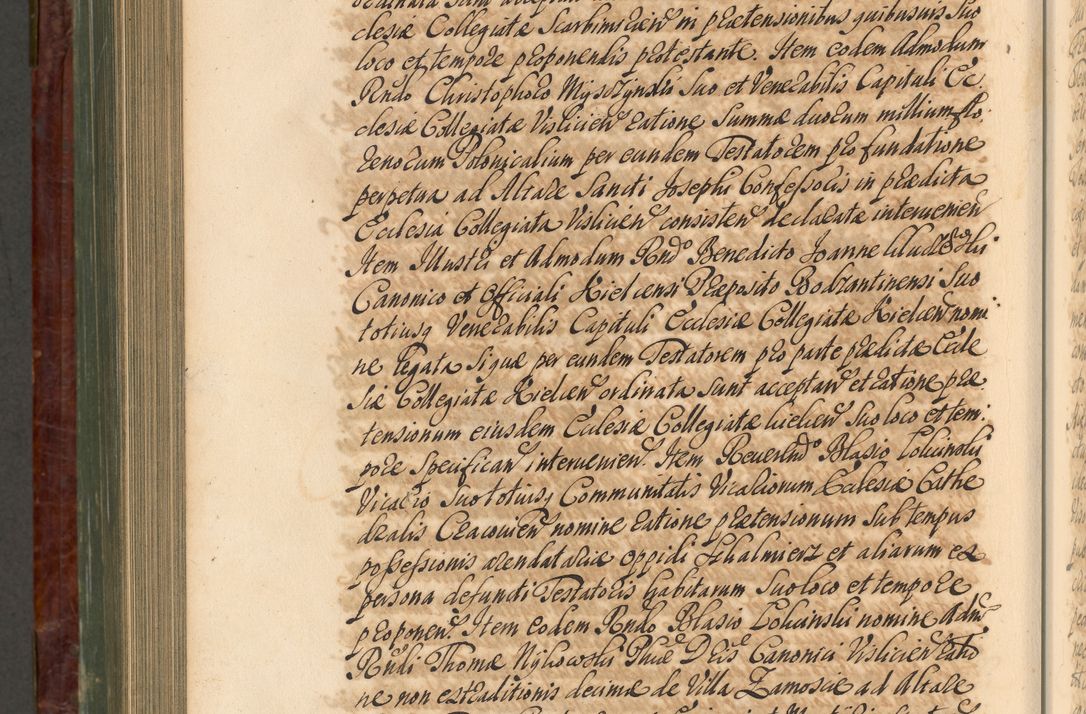 clesiæ Collegiatæ Scarbimirien in prætensionibus quibusuis suo
loco et tempore proponendis protestante. Item eodem Admodum
Rndo Christophoro Mysozynski suo et Venerabilis Capituli Ec
clesiæ Collegiatæ Vislicien ratione summæ duorum millium flo
renorum Polonicalium per eundem Testatorem pro fundatione
perpetua ad Altare Sancti Josephi Confessoris in prædicta
Ecclesia Collegiata Vislicien consisten declaratæ intervenien
Item Illustri et Admodum Rndo Benedicto Joanne
Canonico et Officiali Kielcensi Præposito Bodzantinensi suo
totiusq Venerabilis Capituli Ecclesiæ Collegiatæ Kielcen nomi
ne legata siquæ per eundem Testatorem pro parte prædictæ Eccle
siæ Collegiatæ Kielcen ordinata sunt acceptan et ratione præ
tensionum eiusdem Ecclesiæ Collegiatæ Kielcen suo loco et tem:
pore specifican intervenien. Item Reuerendo Blasio Lokcinski
Vicario suo totiusq Communitatis Vicariorum Ecclesiæ Cathe
dralis Cracouien nomine ratione prætensionum sub tempus
possessionis arendatariæ oppidi Skalmierz et aliarum ex
persona defuncti Testatoris habitarum suo loco et tempore
proponen. Item eodem Rndo Blasio Lokcinski nomine Adm
Rndi Thomæ Nykowski Canonici Vislicien ratio
ne non extraditionis decimæ de Villa Zamoscie ad Altare